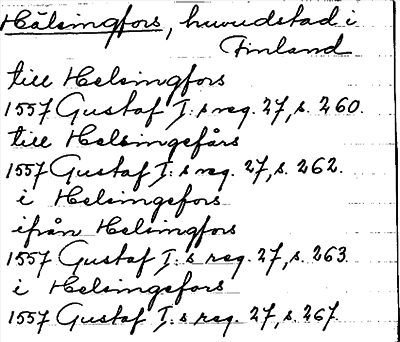 Hälsingfors, huvudstad i
Finland
till Helsingfors
1557 Gustaf I:s reg. 27, s. 260.
till Helsingefårs
1557 Gustaf I:s reg. 27, s. 262.
i Helsingefors
ifrån Helsingfors
1557 Gustaf I:s reg. 27, s. 263
i Helsingefors
1557 Gustaf I:s reg. 27, s. 267.